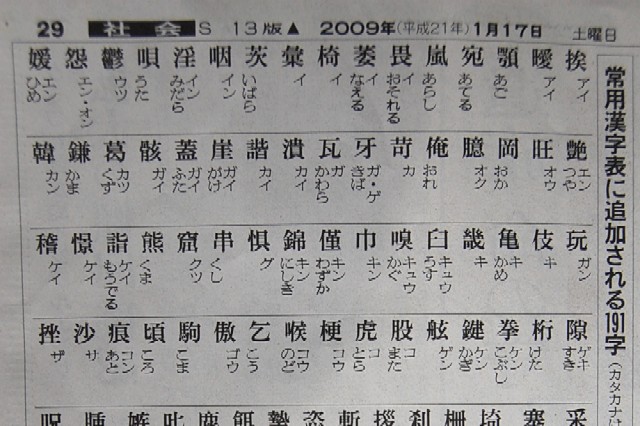 29 社会 S 13版▲ 2009年(平成21年)1月17日 土曜日
常用漢字表に追加される191字(カタカナは
挨 曖 顎 宛 嵐 畏 萎 椅 彙 茨 咽 淫 唄 鬱 怨 媛
アイ アイ あご あてる あらし イ・おそれる イ・なえる イ イ いばら イン イン・みだら うた ウツ エン・オン エン・ひめ
艶 旺 岡 臆 俺 苛 牙 瓦 潰 諧 崖 蓋 骸 葛 鎌 韓
エン・つや オウ おか オク おれ カ ガ・ゲ・きば ガ・かわら カイ カイ ガイ・がけ ガイ・ふた ガイ カツ・くず かま カン
玩 伎 亀 畿 臼 嗅 巾 僅 錦 惧 串 窟 熊 詣 憬 稽
ガン キ キ・かめ キ キュウ・うす キュウ・かぐ キン キン・わずか キン・にしき グ くし クツ くま ケイ・もうでる ケイ ケイ
隙 桁 拳 鍵 舷 股 虎 梗 喉 乞 傲 駒 頃 痕 沙 挫
ゲキ・すき けた ケン・こぶし ケン・かぎ ゲン コ・また コ・とら コウ コウ・のど こう ゴウ こま ころ コン・あと サ ザ
采 塞 埼 柵 刹 拶 斬 恣 摯 餌 鹿 𠮟 嫉 腫 呪